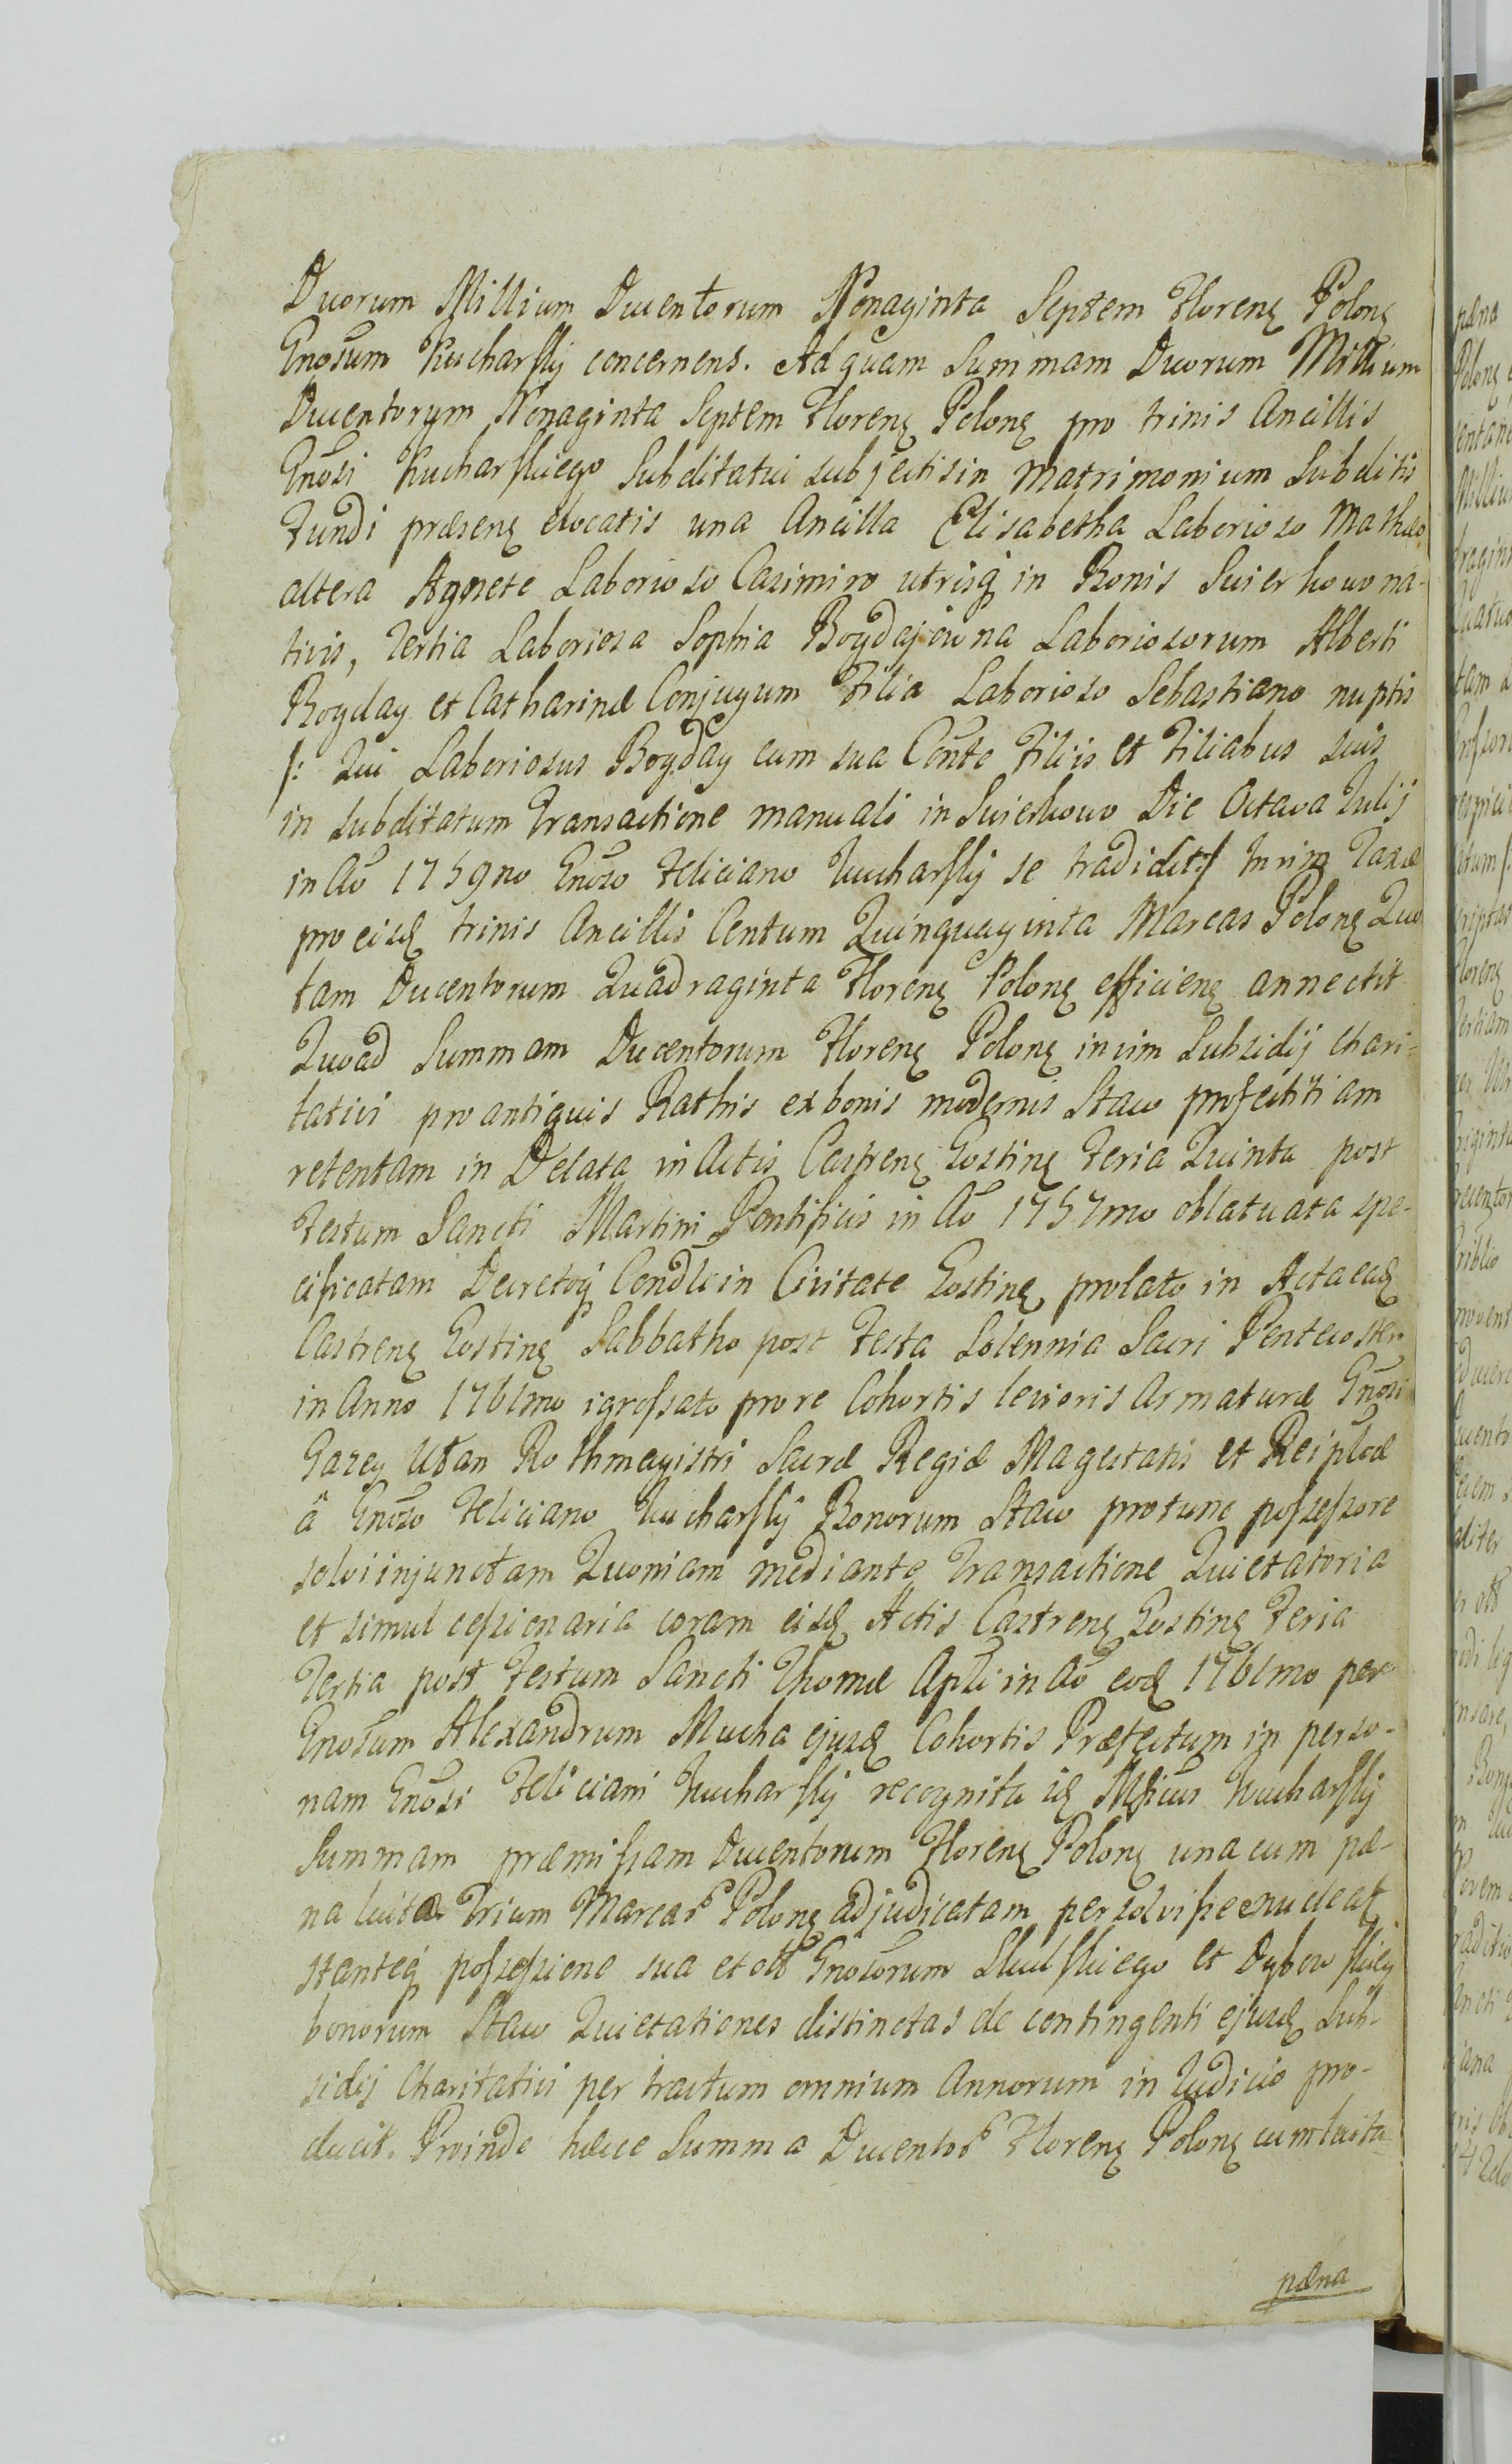 Duorum Millium Ducentorum Nonaginta Septem Florenꝫ Polonꝫ
Gnosum Kucharsky concernens. Ad quam Summam Duorum Millium
Ducentorum Nonaginta Septem Florenꝫ Polonꝫ pro trinis Ancillis
Gnosi Kucharskiego Subditatui subjectis in Matrimonium Subditis
Fundi præsenꝫ elocatis una Ancilla Elisabetha Laborioso Mathæo
altera Agnete Laborioso Casimiro utrisq in Bonis Swierkowo na-
tivis, Tertia Laboriosa Sophia Bogdajowna Laboriosorum Alberti
Bogday et Catharinæ Conjugum Filia Laborioso Sebastiano nuptis
/: Qui Laboriosus Bogday cum sua Conte Filiis et Filiabus suis
in subditatum Transactione manuali in Swierkowo Die Octava Julij
in Ao 1759no Gnoso Feliciano Kucharsky se tradidit :/ In vim Taxæ
pro eisdꝫ trinis Ancillis Centum Quinquaginta Marcas Polonꝫ Quo
tam Ducentorum Quadraginta Florenꝫ Polonꝫ efficienꝫ annectit
Quoad Summam Ducentorum Florenꝫ Polonꝫ in vim Subsidij Chari-
tativi pro antiquis Rathis ex bonis modernis Staw profectitiam
retentam in Delata in Actis Castrenꝫ Gostinꝫ Feria Quinta post
Festum Sancti Martini Pontificis in Ao 1757mo oblatuata spe-
cificatam Decretoq Condli in Civitate Gostinꝫ prolato in Acta eadꝫ
Castrenꝫ Gostinꝫ Sabbatho post Festa Solennia Sacri Pentecosten
in Anno 1761mo igrossato pro re Cohortis levioris Armaturæ Gnosi
Gazey Ułan Rothmagistri Sacræ Regiæ Magestatis et Reiplcæ
â Gnoso Feliciano Kucharsky Bonorum Staw protunc possessore
solvi injunctam Quoniam medianteq Transactione Quietatoria
et simul cessionaria coram eisdꝫ Actis Castrenꝫ Gostinꝫ Feria
Tertia post Festum Sancti Thomæ Apli in Ao eodꝫ 1761mo per
Gnosum Alexandrum Mucha ejusdꝫ Cohortis Præfectum in perso-
nam Gnosi Feliciani Kucharsky recognita idꝫ Mficus Kucharsky
Summam præmissam Ducentorum Florenꝫ Polonꝫ una cum pæ-
na luita Trium Marcar Polonꝫ adjudicatam persolvisse
stanteq possessione sua et olł Gnosorum et
bonorum Staw Quietationes distinctas de contingenti ejusdꝫ Sub-
sidij Charitativi per tractum omnium Annorum in Judicio pro-
ducit. Proinde hæcce Summa Ducentor Florenꝫ Polonꝫ cum luita
pæna